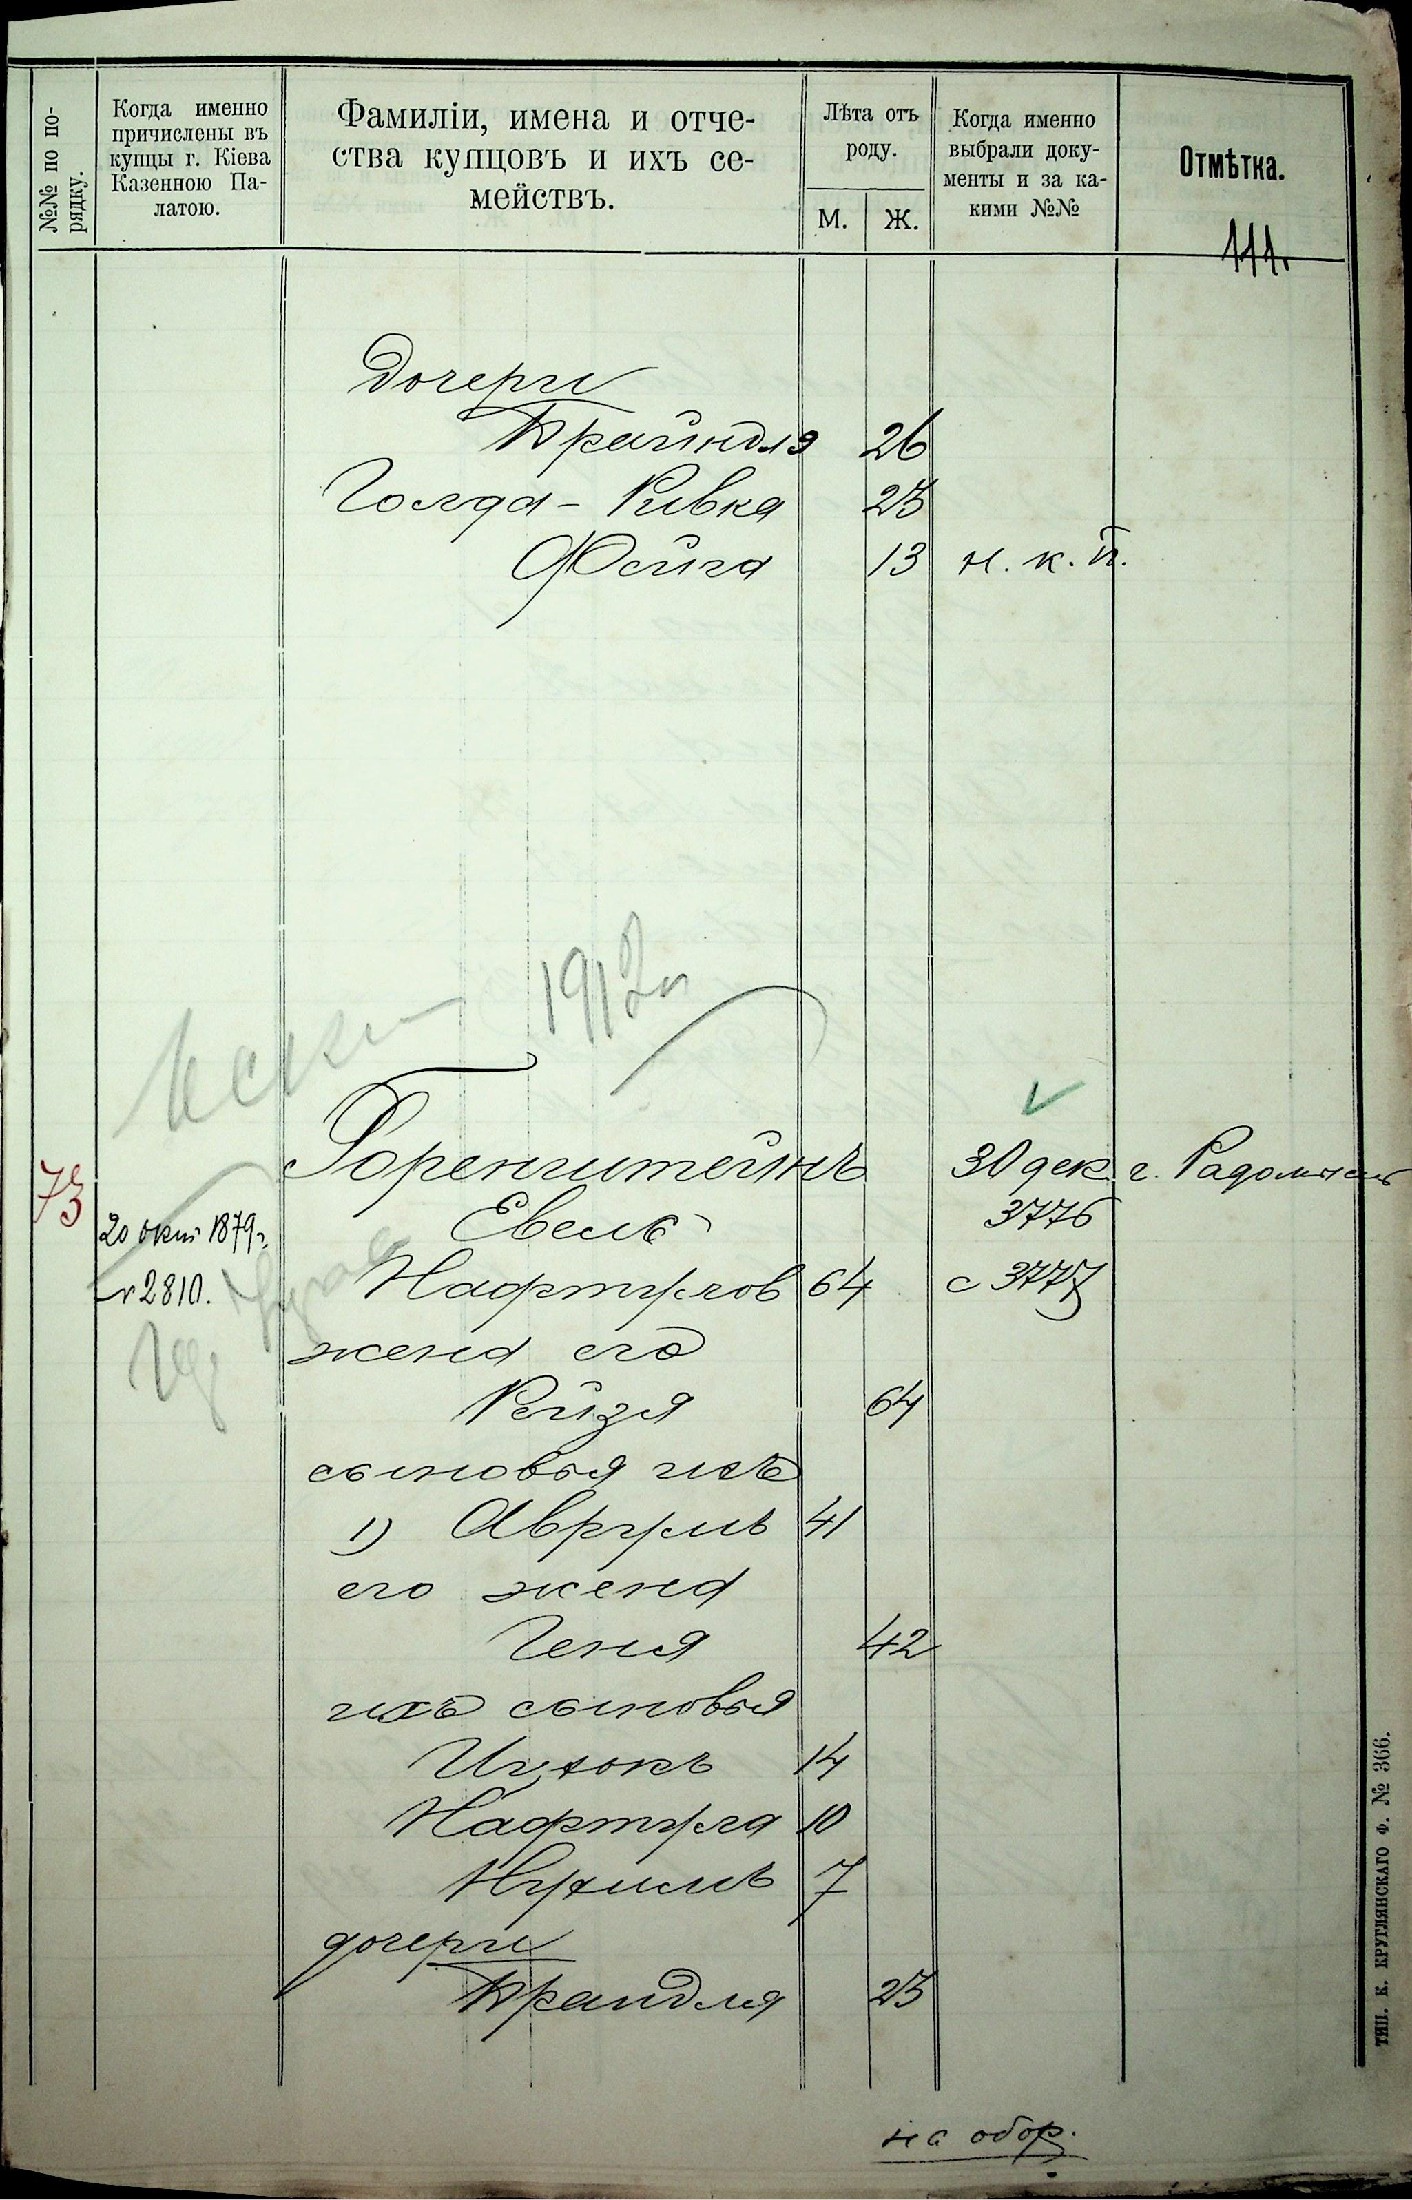 №№ по по-
рядку.
Когда именно
причислены въ
купцы г. Кіева
Казенною Па-
латою.
Фамиліи, имена и отче-
ства купцовъ и ихъ се-
мействъ.
Лѣта отъ
роду.
М. Ж.
Когда именно
выбрали доку-
менты и за ка-
кими №№
Отмѣтка.
111.
дочери
Брайндля 26
Голда - Ривка 23
Фейга 13 н. к. п.
1912 г
73
20 окт 1879 г.
№ 2810.
Горенштейнъ 30 дек. г. Радомысль
Евель 3776
Нафтулов 64 с 3777
жена его
Рейзя 64
сыновья ихъ
1) Аврумъ 41
его жена
Геня 42
ихъ сыновья
Ицхокъ 14
Нафтула 10
Нухимъ 7
дочери
Брандля 23
на обор.
ТИП. К. КРУГЛЯНСКАГО Ф. № 366.